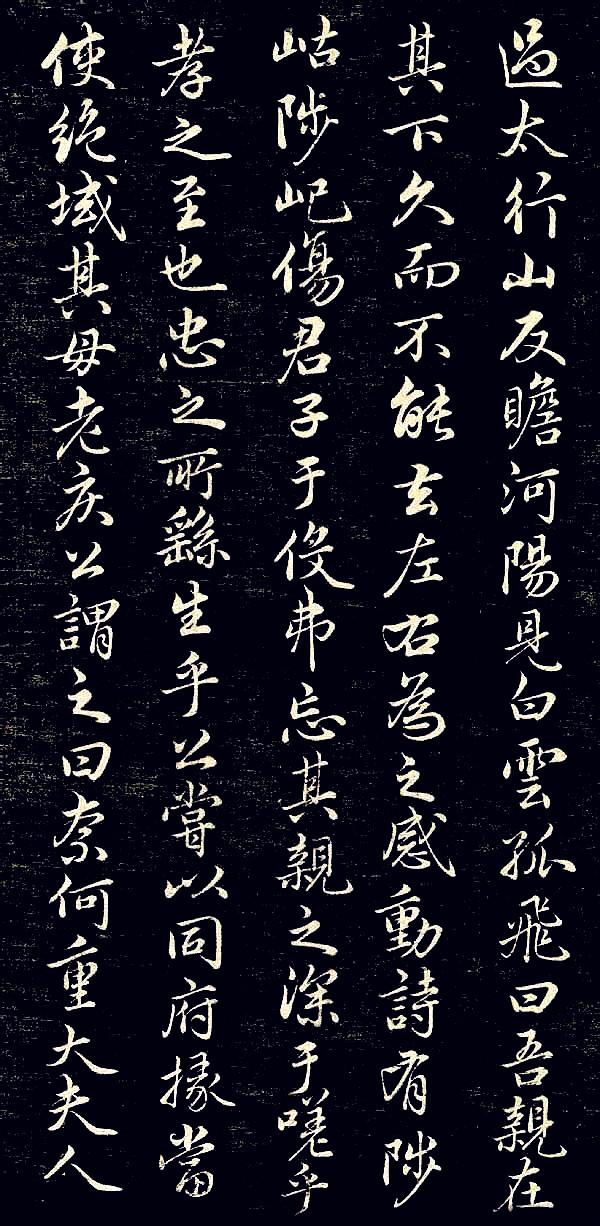 過太行山反瞻河陽見白雲孤飛曰吾親在
其下久而不能去左右為之感動詩有陟
岵陟屺傷君子于役弗忘其親之深于嗟乎
孝之至也忠之所繇生乎公嘗以同府掾當
使絶域其母老疾公謂之曰奈何重大夫人